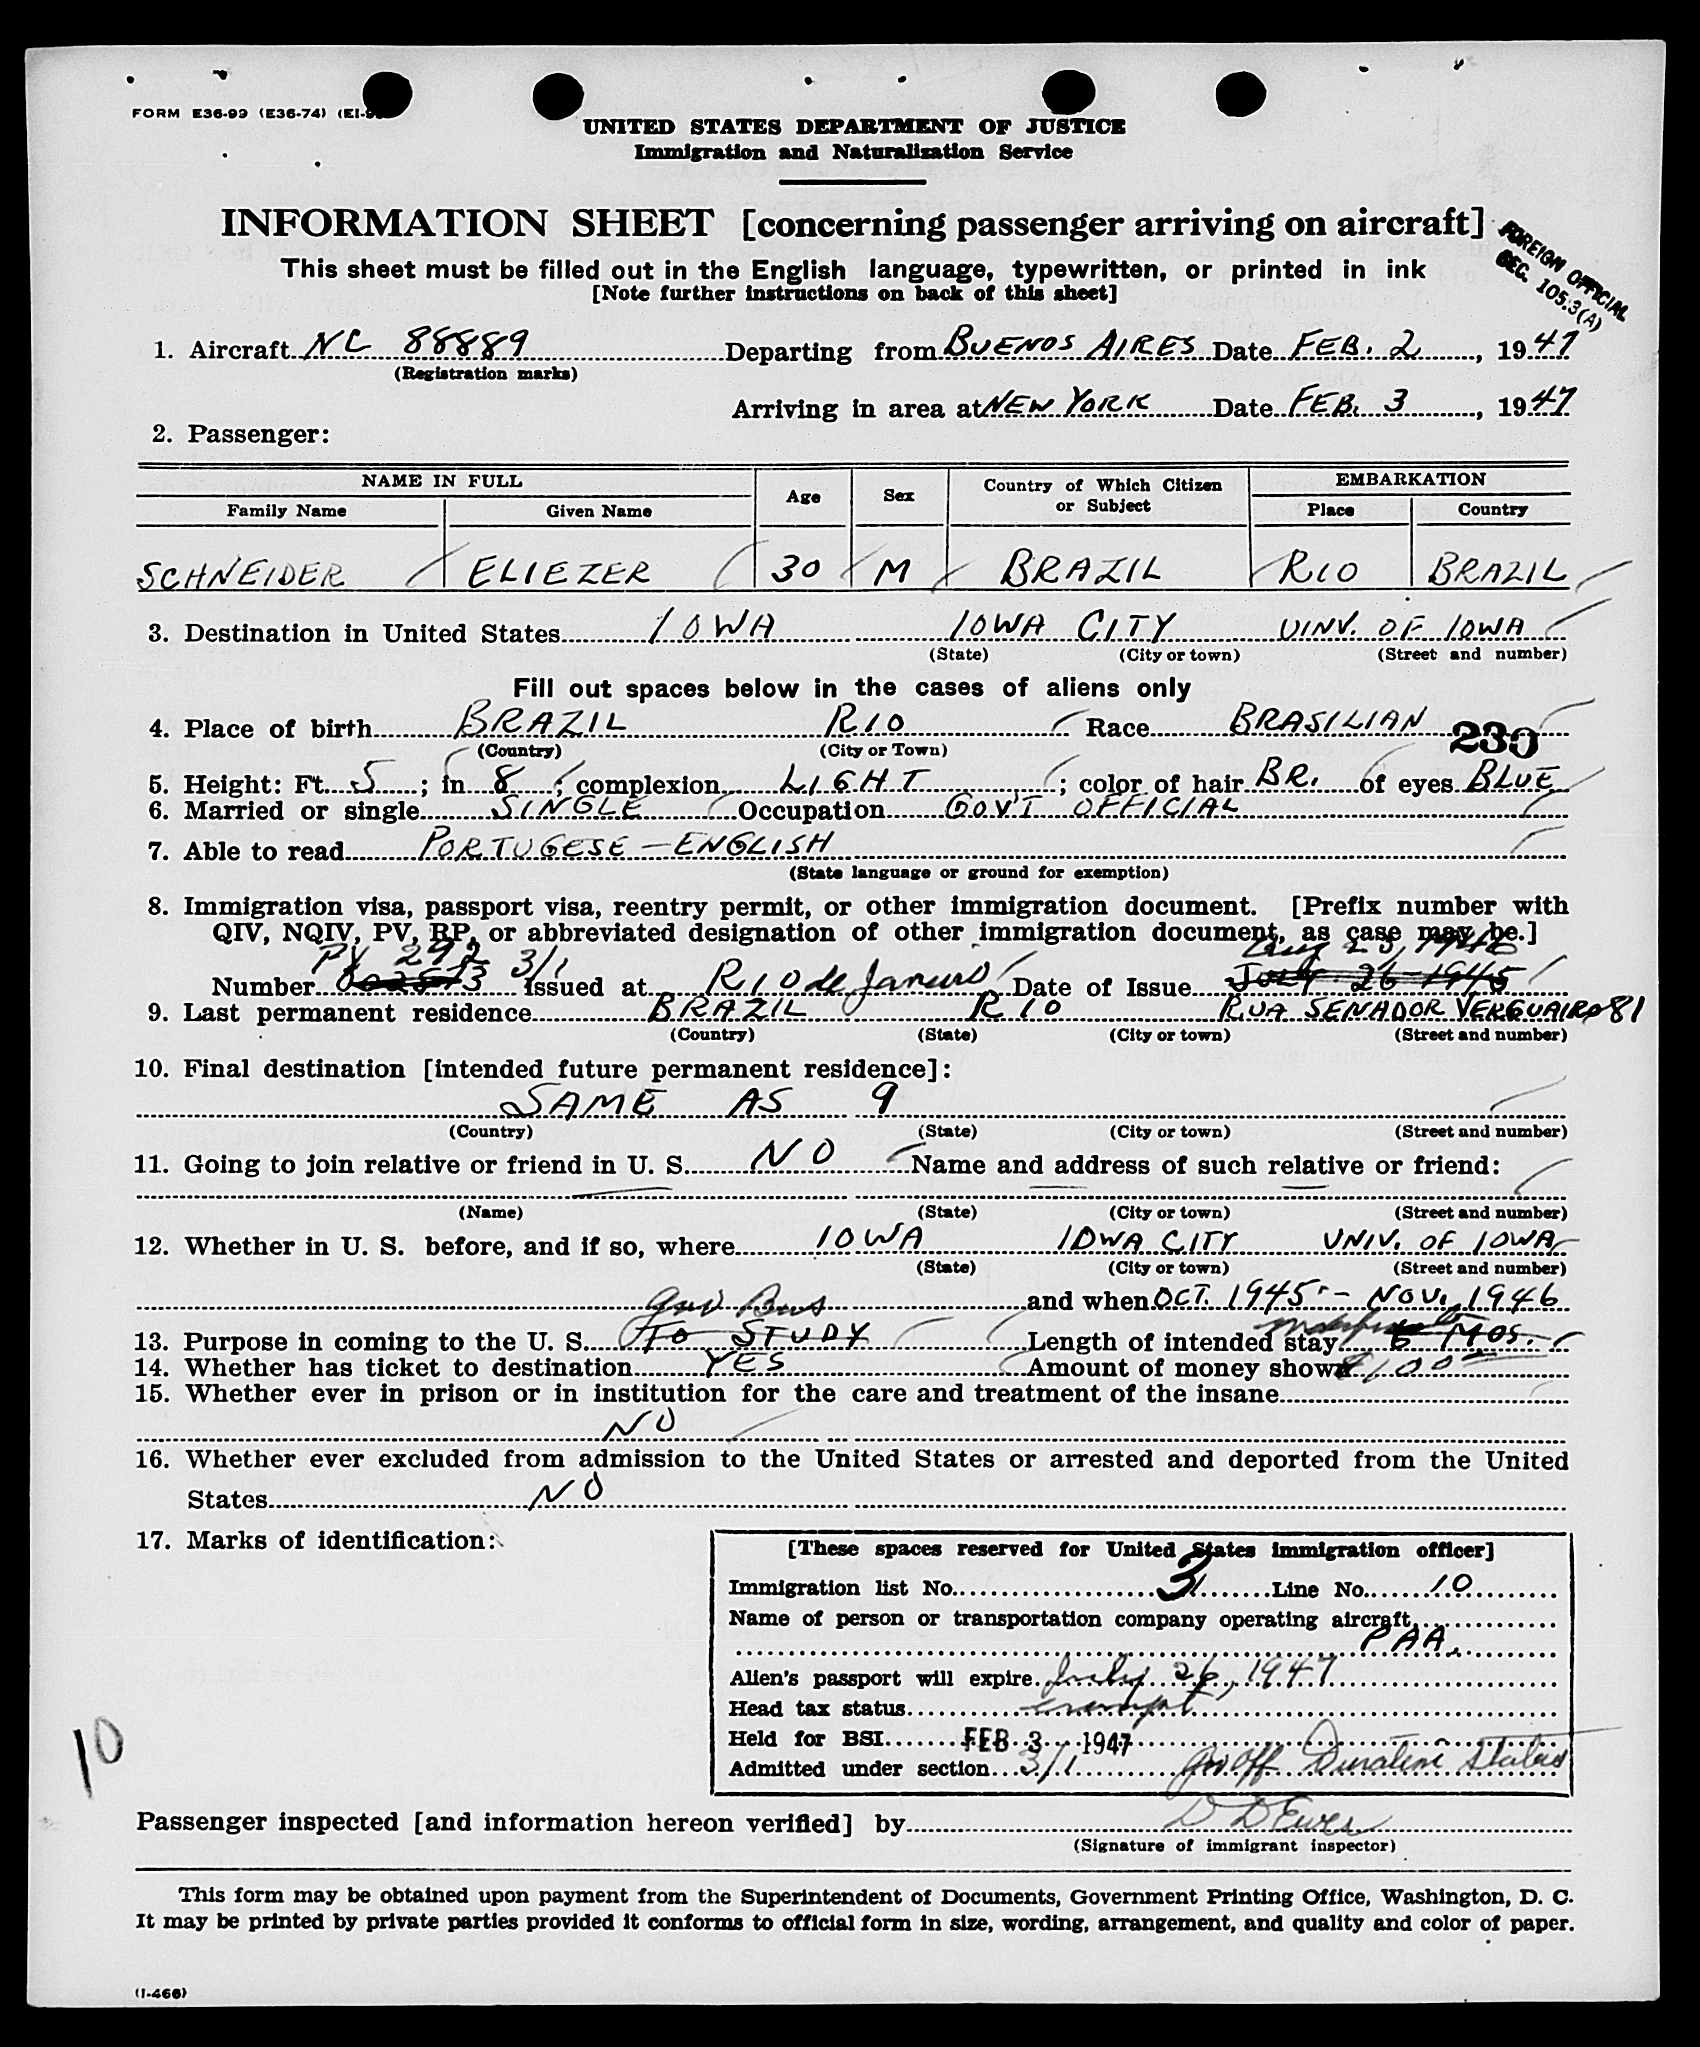 FORM E36-99 (E36-74) (EI-
UNITED STATES DEPARTMENT OF JUSTICE
Immigration and Naturalization Service
INFORMATION SHEET [concerning passenger arriving on aircraft]
FOREIGN OFFICIAL
SEC. 105.3(A)
This sheet must be filled out in the English language, typewritten, or printed in ink
[Note further instructions on back of this sheet]
1. Aircraft NC 88889 Departing from BUENOS AIRES Date FEB. 2, 1947
(Registration marks)
Arriving in area at NEW YORK Date FEB. 3, 1947
2. Passenger:
NAME IN FULL Age Sex Country of Which Citizen or Subject EMBARKATION
Family Name Given Name Place Country
SCHNEIDER ELIEZER 30 M BRAZIL RIO BRAZIL
3. Destination in United States IOWA IOWA CITY UINV. OF IOWA
(State) (City or town) (Street and number)
Fill out spaces below in the cases of aliens only
4. Place of birth BRAZIL RIO Race BRASILIAN
(Country) (City or Town) 230
5. Height: Ft. 5; in 8; complexion LIGHT; color of hair BR. of eyes BLUE
6. Married or single SINGLE Occupation GOV'T OFFICIAL
7. Able to read PORTUGESE - ENGLISH
(State language or ground for exemption)
8. Immigration visa, passport visa, reentry permit, or other immigration document. [Prefix number with
QIV, NQIV, PV, RP, or abbreviated designation of other immigration document, as case may be.]
PV 292 3/1 Aug 23, 1946
Number Issued at RIO de Janeiro Date of Issue July 26-1945
9. Last permanent residence BRAZIL RIO RUA SENADOR VERGUAIRO 81
(Country) (State) (City or town) (Street and number)
10. Final destination [intended future permanent residence]:
SAME AS 9
(Country) (State) (City or town) (Street and number)
11. Going to join relative or friend in U. S. NO Name and address of such relative or friend:
(Name) (State) (City or town) (Street and number)
12. Whether in U. S. before, and if so, where IOWA IOWA CITY UNIV. OF IOWA
(State) (City or town) (Street and number)
and when OCT. 1945 - NOV. 1946
Gov Bus
13. Purpose in coming to the U. S. TO STUDY Length of intended stay 6 MOS.
14. Whether has ticket to destination YES Amount of money shown $100
15. Whether ever in prison or in institution for the care and treatment of the insane
NO
16. Whether ever excluded from admission to the United States or arrested and deported from the United
States NO
17. Marks of identification:
[These spaces reserved for United States immigration officer]
Immigration list No. 3 Line No. 10
Name of person or transportation company operating aircraft
PAA.
Alien's passport will expire July 26, 1947
Head tax status exempt
Held for BSI FEB 3 1947
Admitted under section 3/1 Gov Off Duration Status
10
Passenger inspected [and information hereon verified] by D D Ewes
(Signature of immigrant inspector)
This form may be obtained upon payment from the Superintendent of Documents, Government Printing Office, Washington, D. C.
It may be printed by private parties provided it conforms to official form in size, wording, arrangement, and quality and color of paper.
(I-466)